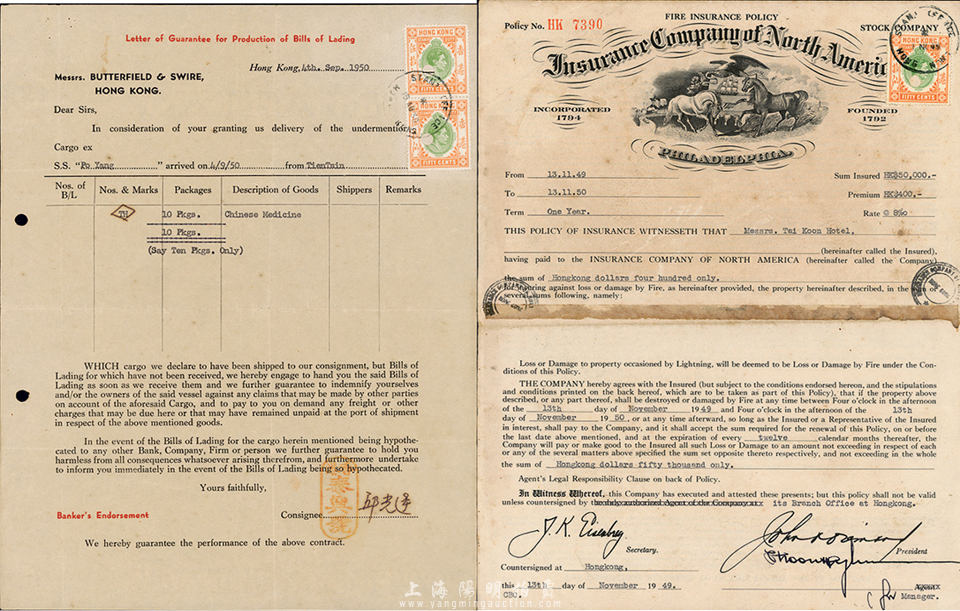 Letter of Guarantee for Production of Bills of Lading
Hong Kong, 4th. Sep. 1950
Messrs. BUTTERFIELD & SWIRE,
HONG KONG.
Dear Sirs,
In consideration of your granting us delivery of the undermentioned
Cargo ex
S.S. "Po Yang" arrived on 4/9/50 from TienTsin
Nos. of B/L Nos. & Marks Packages Description of Goods Shippers Remarks
10 Pkgs. Chinese Medicine
10 Pkgs.
(Say Ten Pkgs. Only)
WHICH cargo we declare to have been shipped to our consignment, but Bills of
Lading for which have not been received, we hereby engage to hand you the said Bills
of Lading as soon as we receive them and we further guarantee to indemnify yourselves
and/or the owners of the said vessel against any claims that may be made by other parties
on account of the aforesaid Cargo, and to pay to you on demand any freight or other
charges that may be due here or that may have remained unpaid at the port of shipment
in respect of the above mentioned goods.
In the event of the Bills of Lading for the cargo herein mentioned being hypothe-
cated to any other Bank, Company, Firm or person we further guarantee to hold you
harmless from all consequences whatsoever arising therefrom, and furthermore undertake
to inform you immediately in the event of the Bills of Lading being so hypothecated.
Yours faithfully,
Banker's Endorsement
Consignee
We hereby guarantee the performance of the above contract.
HONG KONG
FIFTY CENTS
HONG KONG
FIFTY CENTS
FIRE INSURANCE POLICY
Policy No. HK 7390
STOCK COMPANY
Insurance Company of North Americ
INCORPORATED
1794
FOUNDED
1792
PHILADELPHIA.
HONG KONG
FIFTY CENTS
From 13.11.49 Sum Insured HK$50,000.-
To 13.11.50 Premium HK$400.-
Term One Year. Rate @ 8‰
THIS POLICY OF INSURANCE WITNESSETH THAT Messrs. Tai Koon Hotel,
(hereinafter called the Insured),
having paid to the INSURANCE COMPANY OF NORTH AMERICA (hereinafter called the Company)
the sum of Hongkong dollars four hundred only.
for insuring against loss or damage by Fire, as hereinafter provided, the property hereinafter described, in the sum of
several sums following, namely:
Loss or Damage to property occasioned by Lightning, will be deemed to be Loss or Damage by Fire under the Con-
ditions of this Policy.
THE COMPANY hereby agrees with the Insured (but subject to the conditions endorsed hereon, and the stipulations
and conditions printed on the back hereof, which are to be taken as part of this Policy), that if the property above
described, or any part thereof, shall be destroyed or damaged by Fire at any time between Four o'clock in the afternoon
of the 13th day of November 1949 and Four o'clock in the afternoon of the 13th
day of November 1950, or at any time afterward, so long as the Insured or a Representative of the Insured
in interest, shall pay to the Company, and it shall accept the sum required for the renewal of this Policy, on or before
the last date above mentioned, and at the expiration of every twelve calendar months thereafter, the
Company will pay or make good to the Insured all such Loss or Damage to an amount not exceeding in respect of each
or any of the several matters above specified the sum set opposite thereto respectively, and not exceeding in the whole
the sum of Hongkong dollars fifty thousand only.
Agent's Legal Responsibility Clause on back of Policy.
In Witness Whereof, this Company has executed and attested these presents; but this policy shall not be valid
unless countersigned by the duly authorized Agent of the Company at xx its Branch Office at Hongkong.
Secretary.
President
Countersigned at Hongkong,
this 13th day of November 1949.
CBO.
Manager.
上海陽明拍賣
www.yangmingauction.com